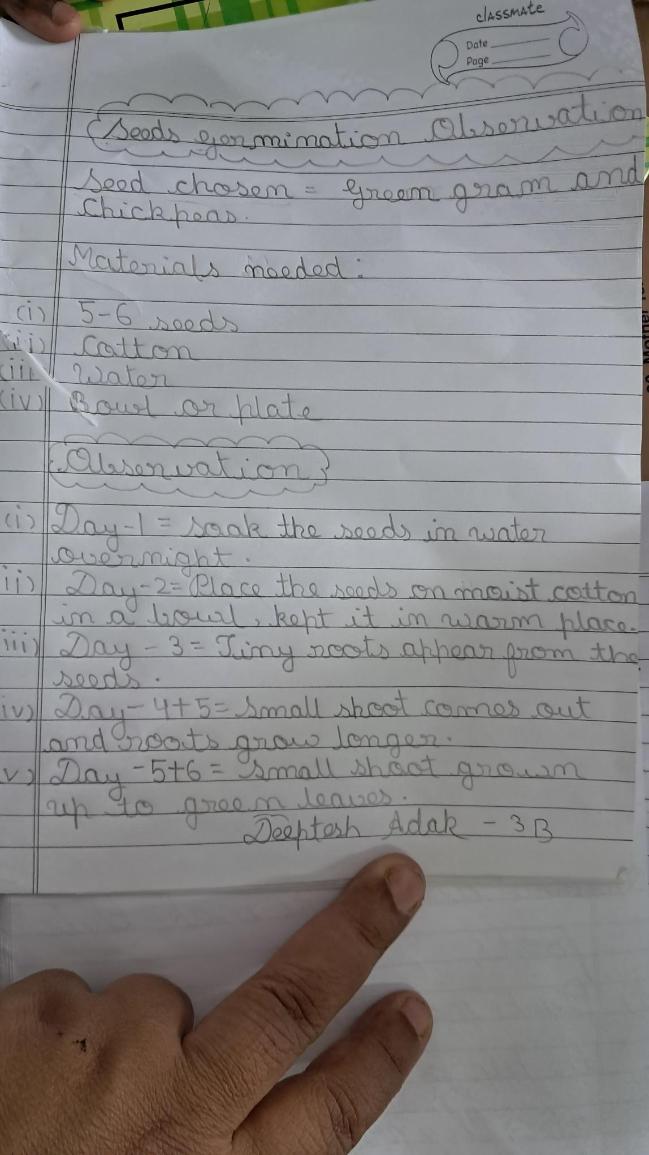 classmate
Date
Page
Seeds germination Observation
Seed chosen = Green gram and
Chickpeas.
Materials needed:
(i) 5-6 seeds
(ii) Cotton
(iii) Water
(iv) Bowl or plate
Observation
(i) Day-1 = soak the seeds in water
overnight.
ii) Day-2= Place the seeds on moist cotton
in a bowl, kept it in warm place.
iii) Day - 3 = Tiny roots appear from the
seeds.
iv) Day-4+5= small shoot comes out
and roots grow longer.
v) Day -5+6= small shoot grown
up to green leaves.
Deeptesh Adak - 3B